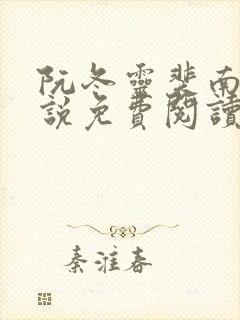 阮冬靈裴南
說免費閱讀
秦淮春